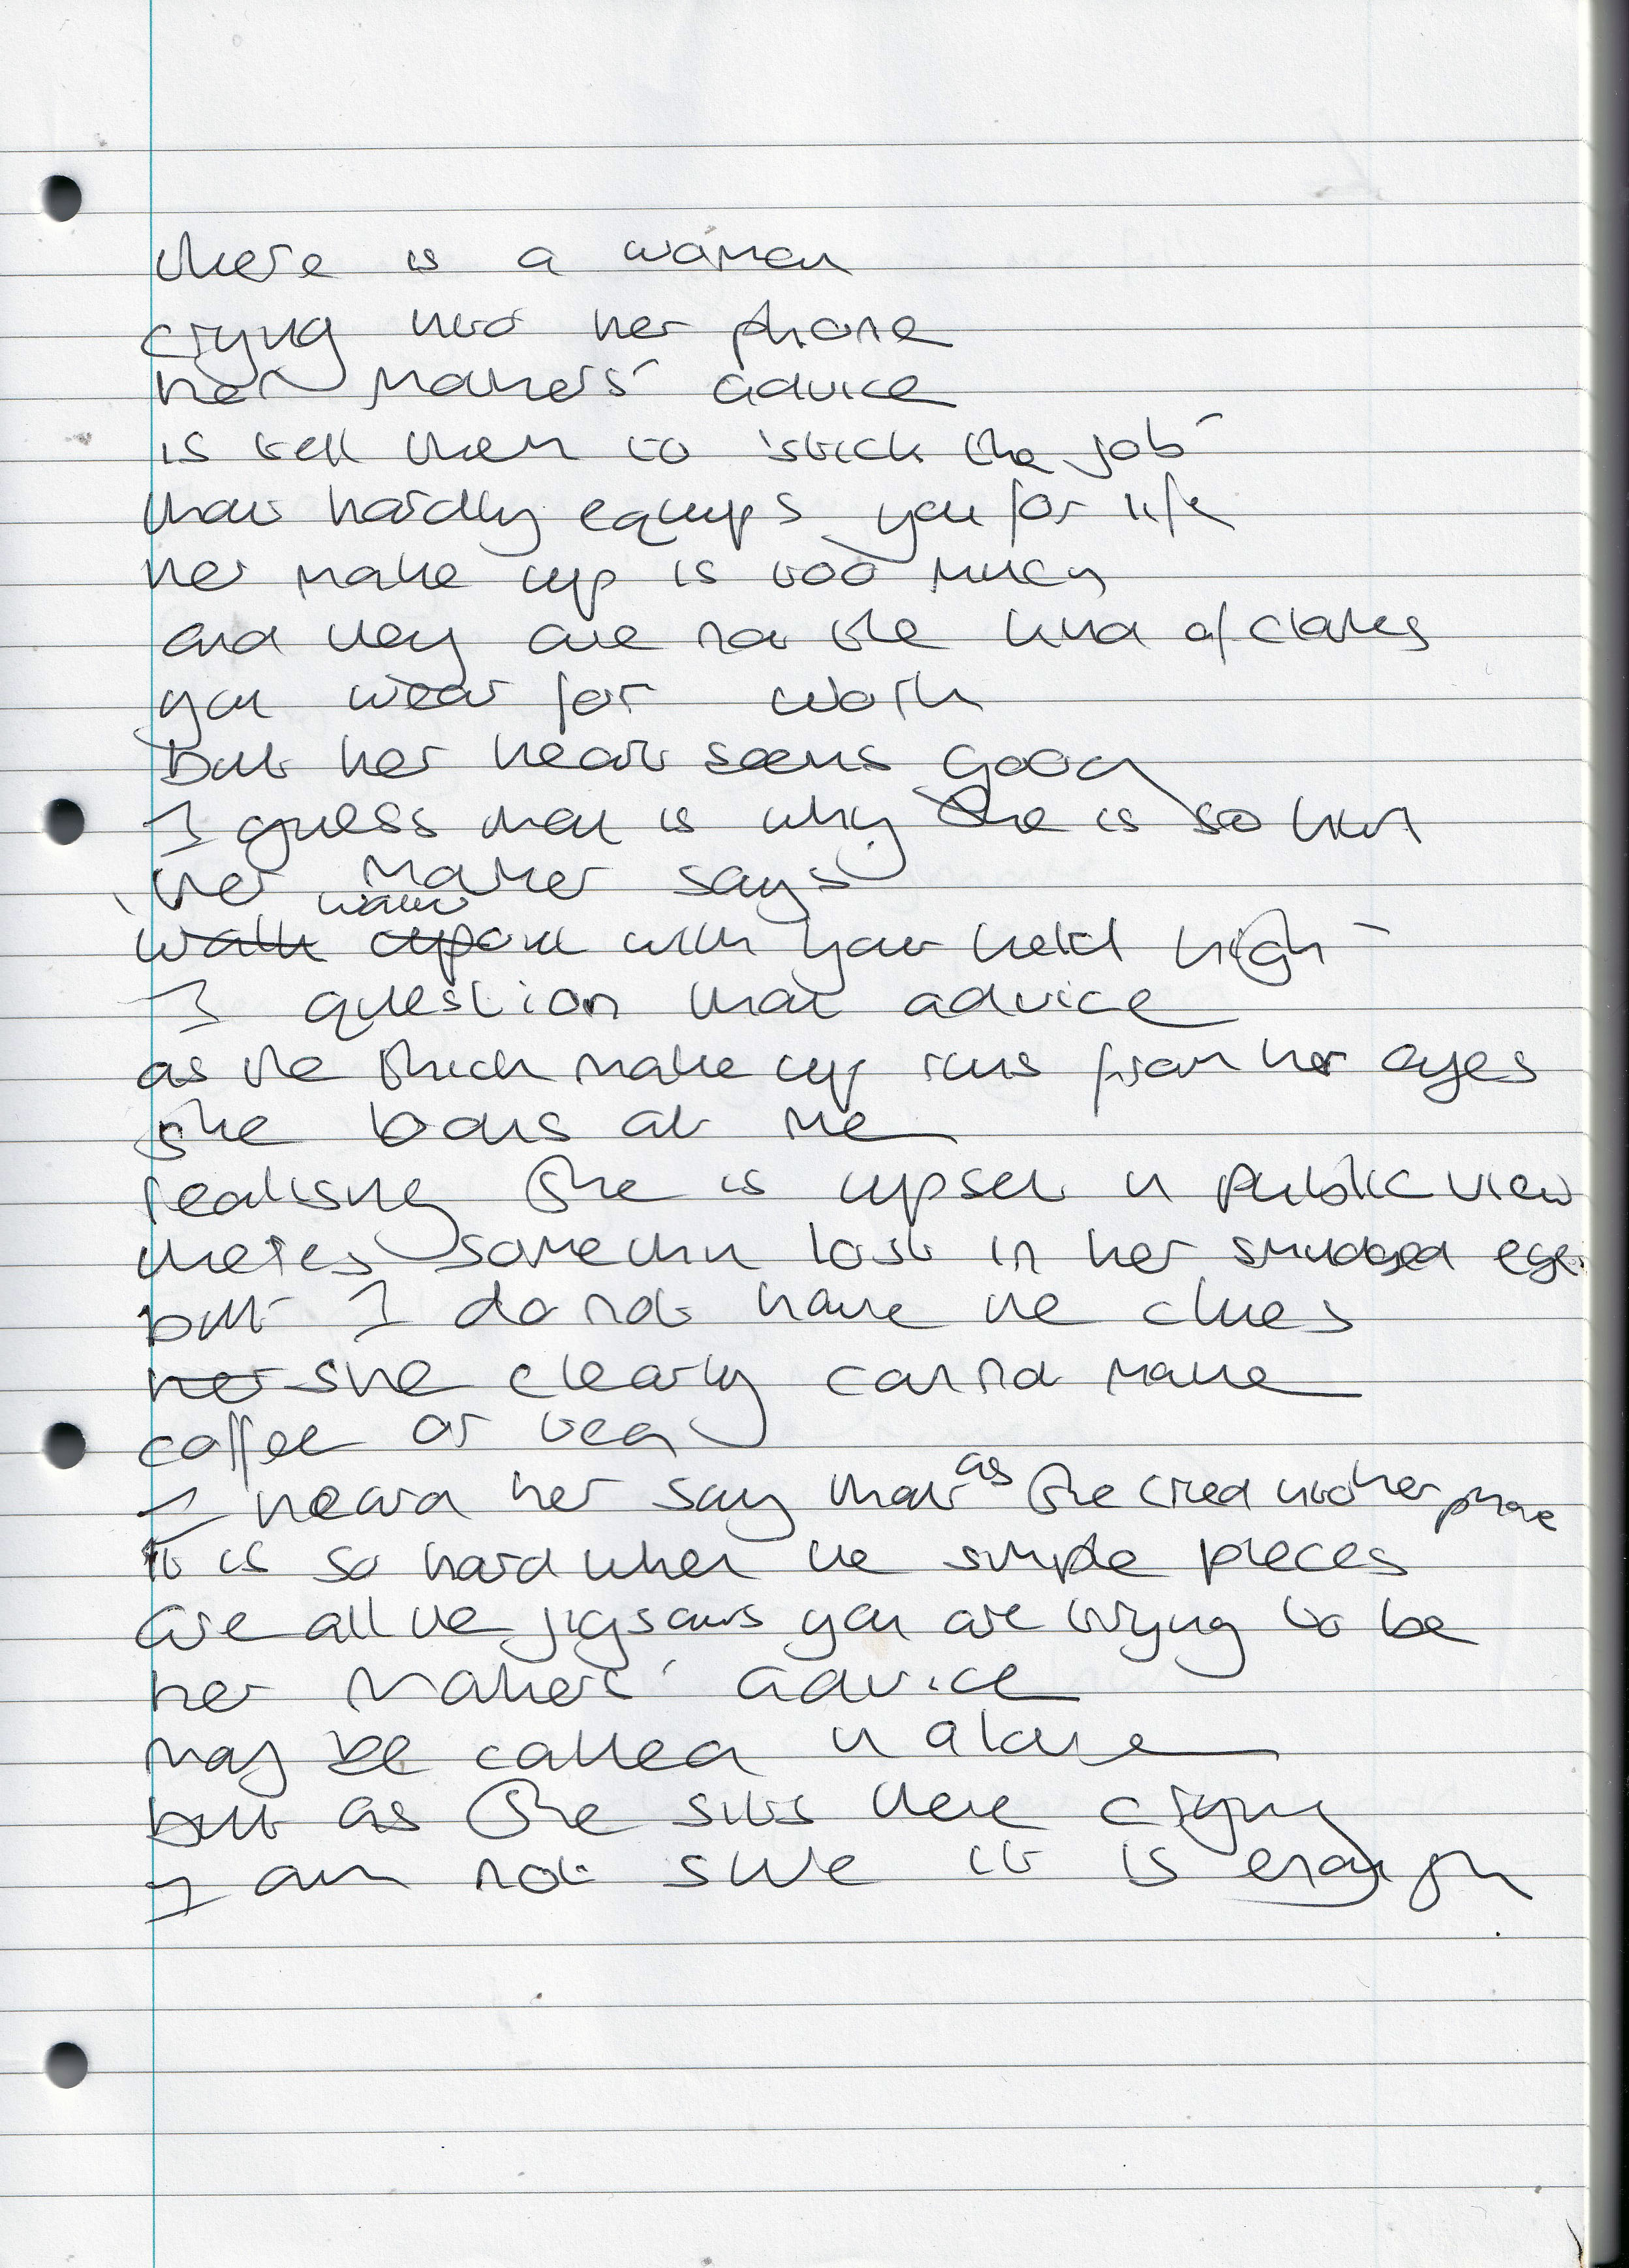 there is a woman
crying into her phone
her mothers' advice
is tell them to 'stick the job'
that hardly equips you for life
her make up is too much
and they are not the kind of clothes
you wear for work
but her heart seems good
I guess that is why she is so hurt
her mother says
'walk out with your held high'
I question that advice
as the thick make up runs from her eyes
she looks at me
realising she is upset in public view
theres somethin lost in her smudged eyes
but I do not have the clues
her she clearly cannot make
coffee or tea
I heard her say that as she cried into her phone
it is so hard when the simple pieces
are all the jigsaws you are trying to be
her mothers' advice
may be called in alone
but as she sits there crying
I am not sure it is enough